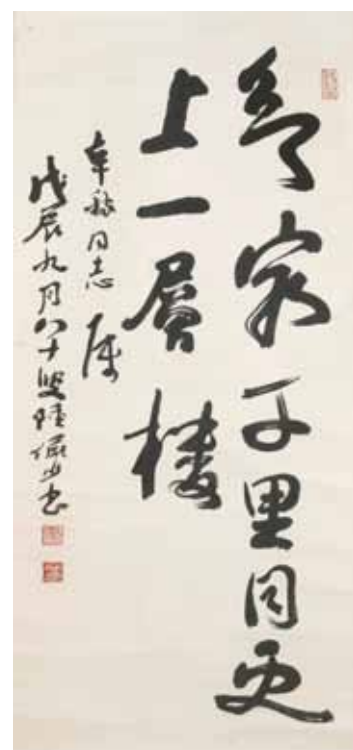 欲窮千里目更
上一層樓
同志属
戊辰九月八十叟陸儼少書